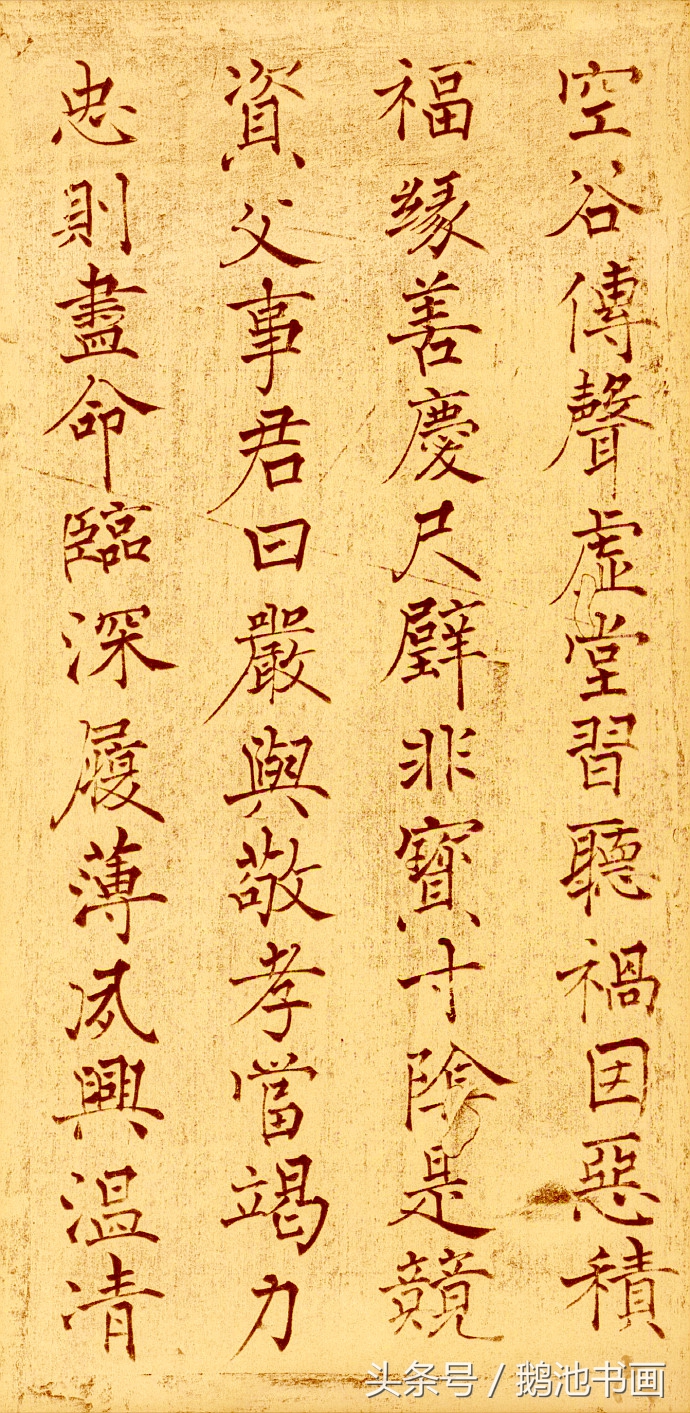 空谷傳聲虛堂習聽禍因惡積
福緣善慶尺璧非寶寸陰是競
資父事君曰嚴與敬孝當竭力
忠則盡命臨深履薄夙興温凊
头条号 / 鹅池书画